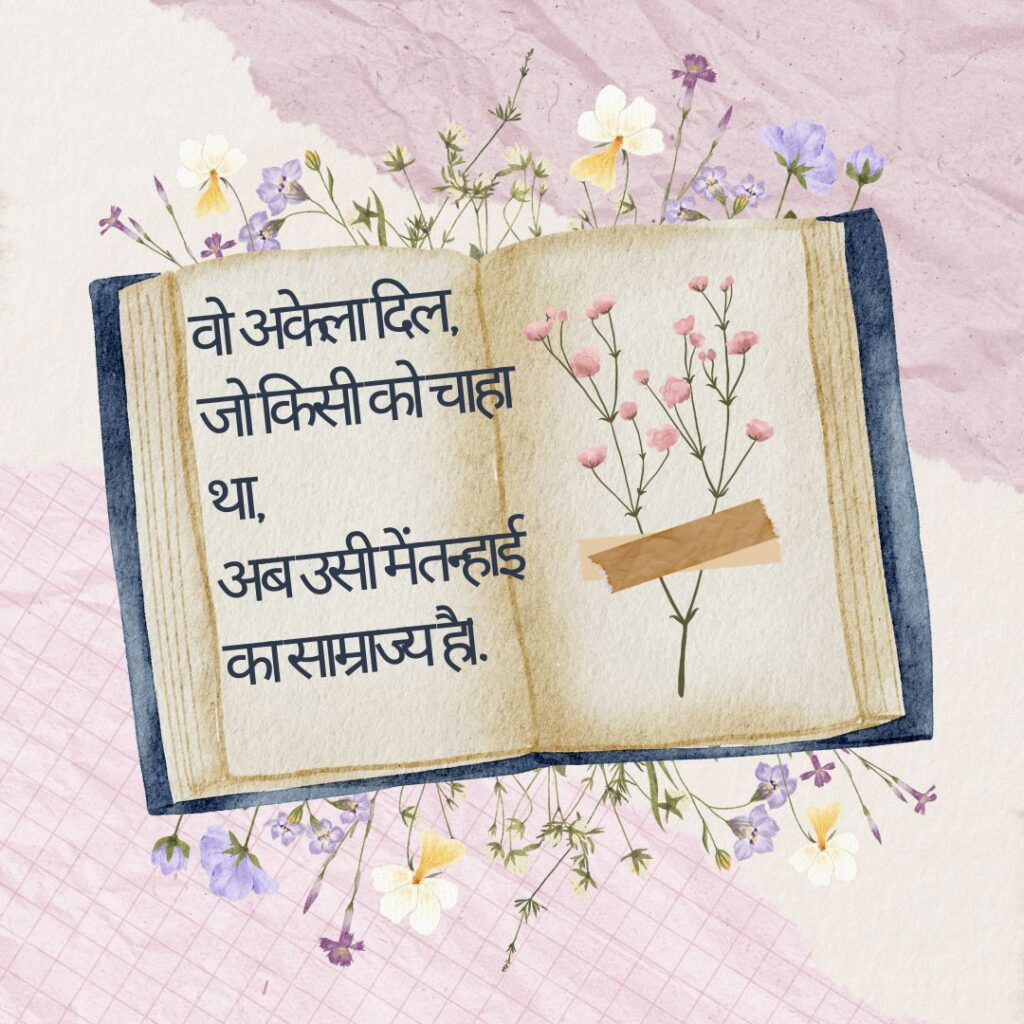 वो अकेला दिल,
जो किसी को चाहा
था,
अब उसी में तन्हाई
का साम्राज्य है!.